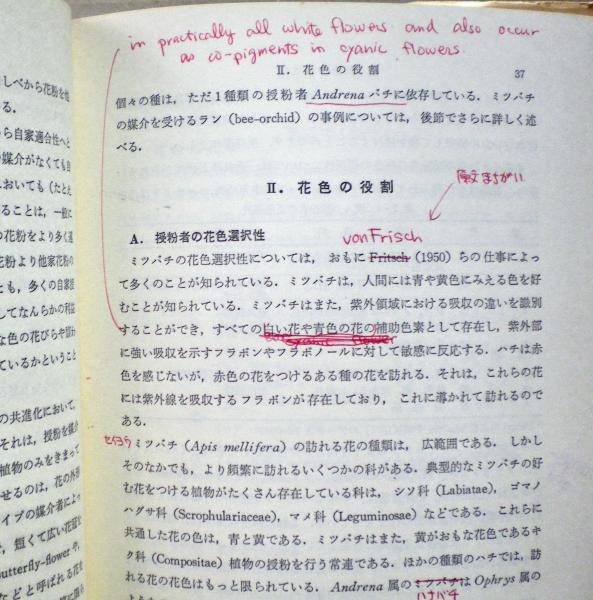 しべから花粉を他
る.
ら自家適合性へと
の媒介がなくても自
おいても (たとえ
ることは, 一般に
の花粉をより多く運
花粉より他家花粉の
とも, 多くの自家受
してなんらかの利益
な色の花びらや
ているかということ
の共進化において,
それは, 授粉を媒介
植物のみをきまって
せるのは, 花の外形
イプの媒介者によっ
, 短くて広い花冠を
butterfly-flower や,
などと呼ばれる花を
in practically all white flowers and also occur
as co-pigments in cyanic flowers.
II. 花色の役割 37
個々の種は, ただ1種類の授粉者 Andrena バチに依存している. ミツバチ
の媒介を受けるラン (bee-orchid) の事例については, 後節でさらに詳しく述
べる.
II. 花色の役割
原文まちがい
A. 授粉者の花色選択性
von Frisch
ミツバチの花色選択性については, おもに Fritsch (1950) らの仕事によっ
て多くのことが知られている. ミツバチは, 人間には青や黄色にみえる色を好
むことが知られている. ミツバチはまた, 紫外領域における吸収の違いを識別
することができ, すべての白い花や青色の花の補助色素として存在し, 紫外部
に強い吸収を示すフラボンやフラボノールに対して敏感に反応する. ハチは赤
色を感じないが, 赤色の花をつけるある種の花を訪れる. それは, これらの花
には紫外線を吸収するフラボンが存在しており, これに導かれて訪れるので
ある.
セイヨウ
ミツバチ (Apis mellifera) の訪れる花の種類は, 広範囲である. しかし
そのなかでも, より頻繁に訪れるいくつかの科がある. 典型的なミツバチの好
む花をつける植物がたくさん存在している科は, シソ科 (Labiatae), ゴマノ
ハグサ科 (Scrophulariaceae), マメ科 (Leguminosae) などである. これらに
共通した花の色は, 青と黄である. ミツバチはまた, 黄がおもな花色であるキ
ク科 (Compositae) 植物の授粉を行う常連である. ほかの種類のハチでは, 訪
れる花の花色はもっと限られている. Andrena 属のミツバチは Ophrys 属の
ハナバチ